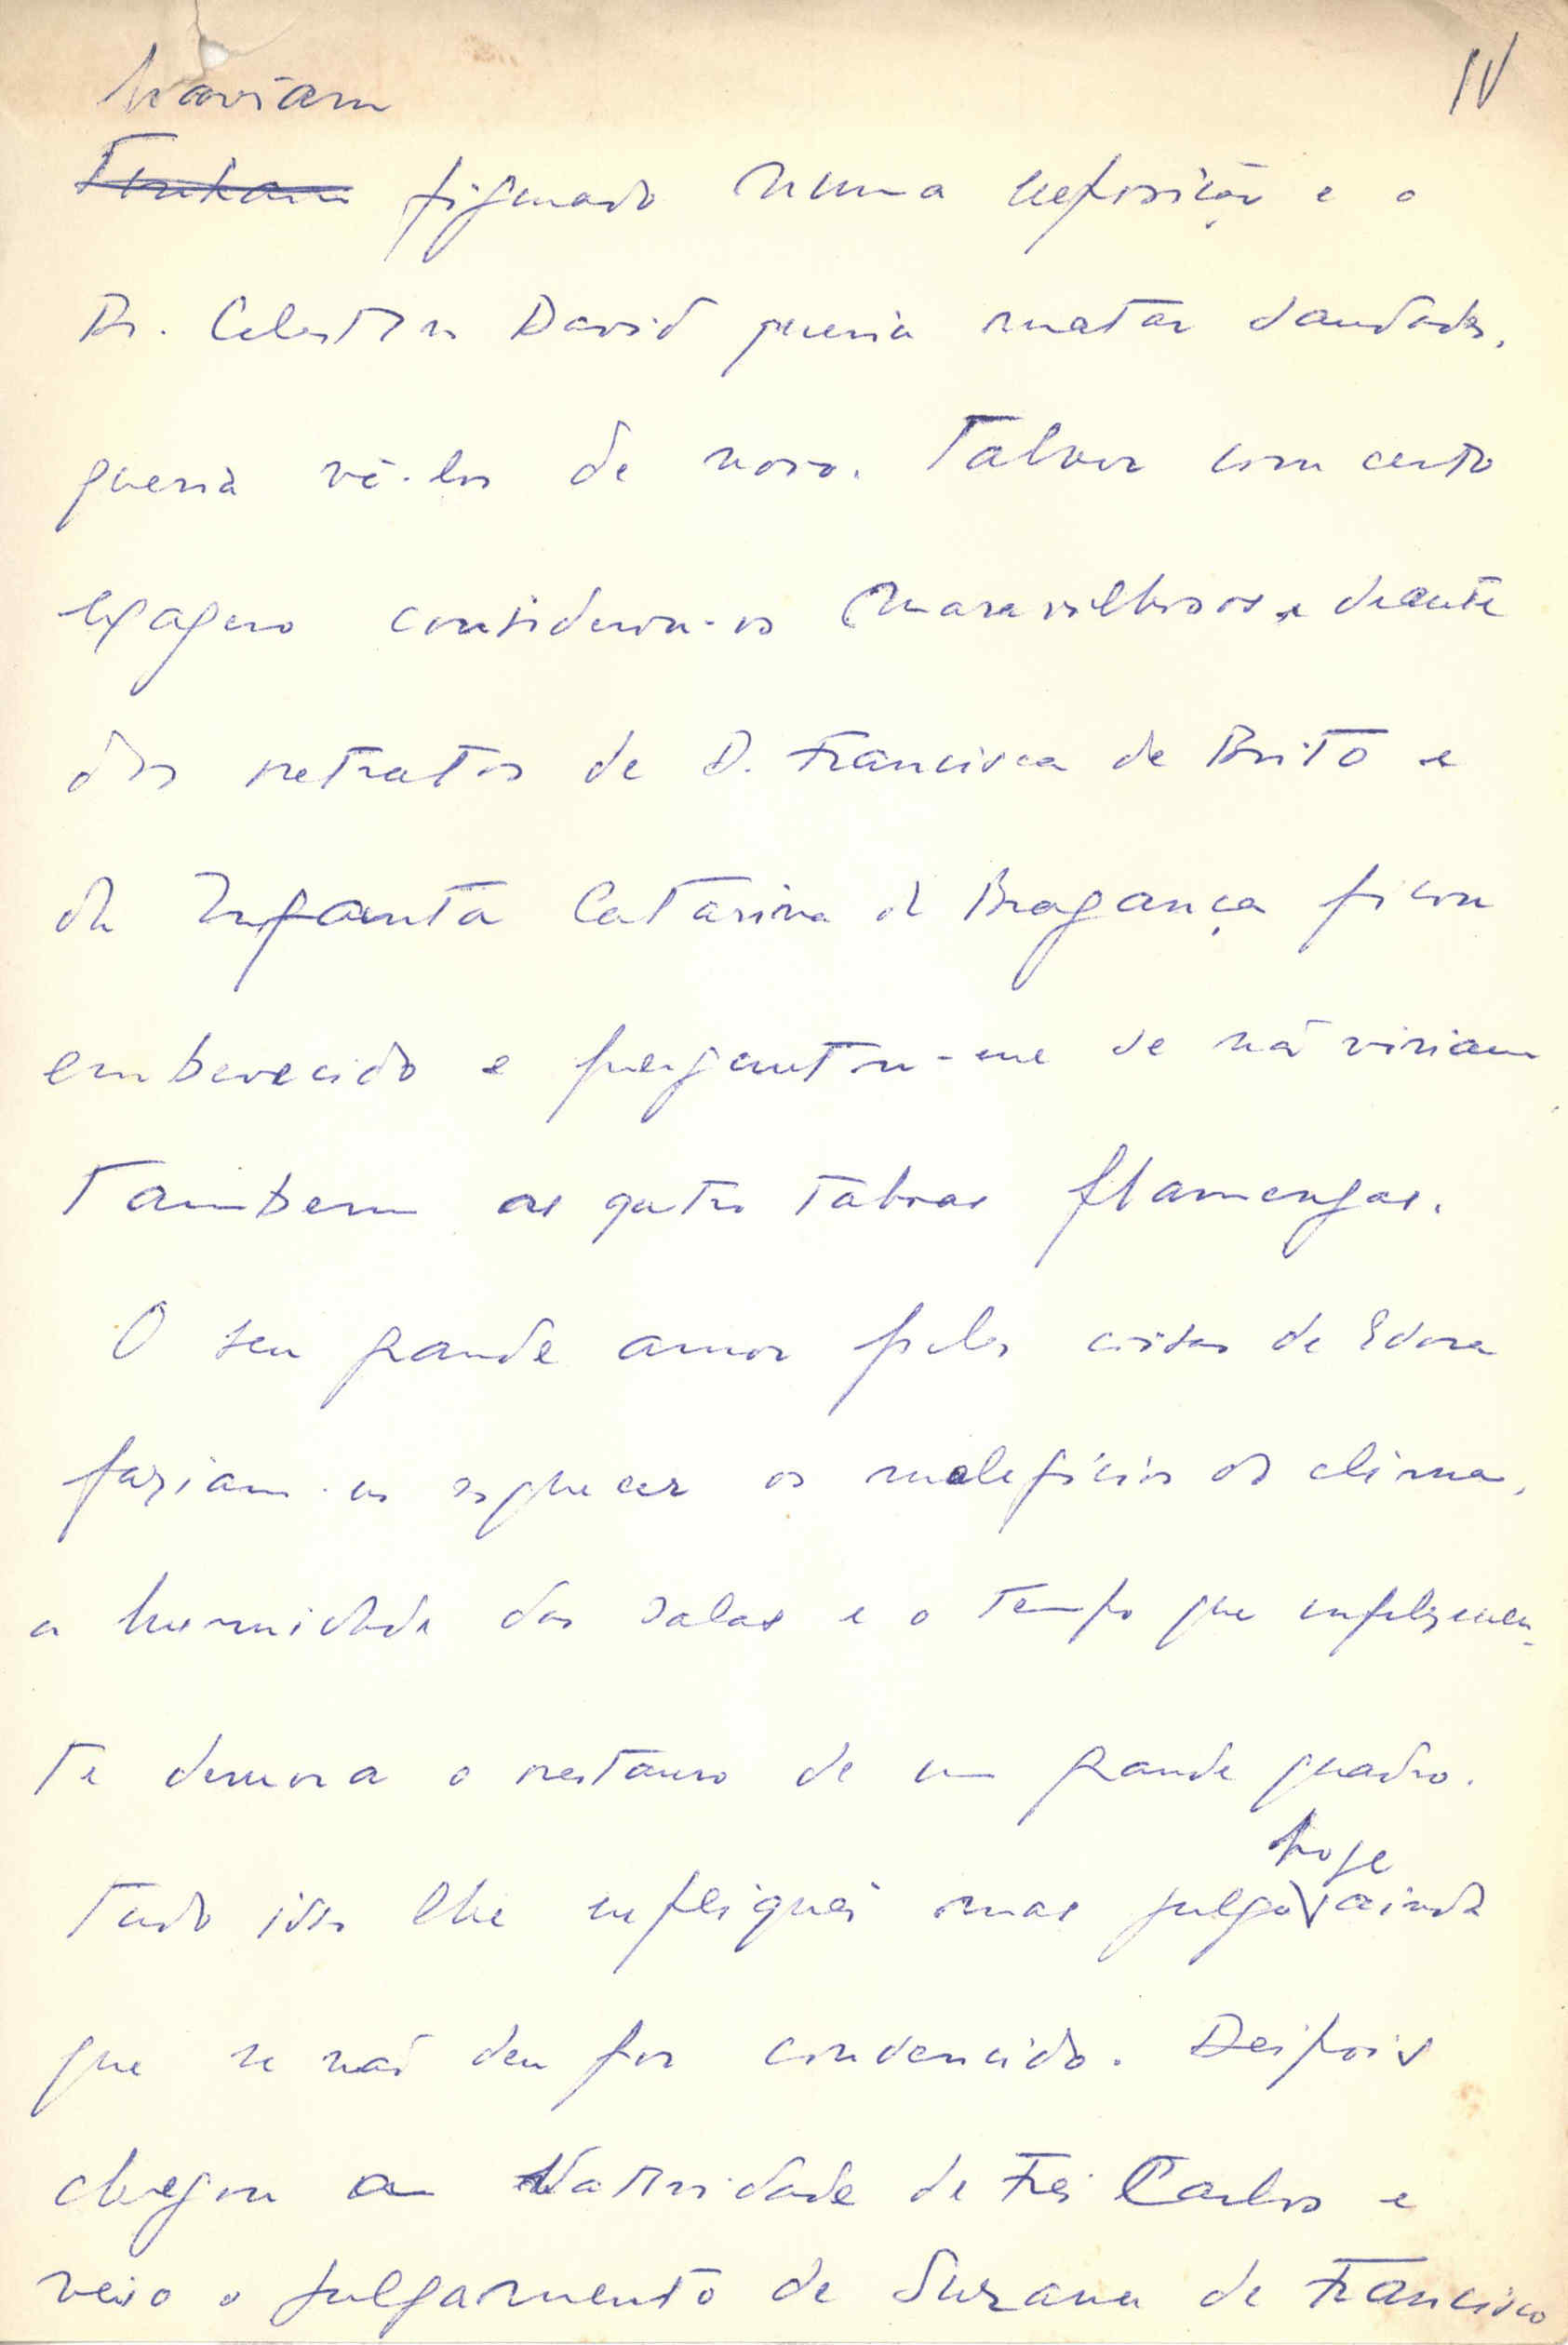 IV
haviam
Tinham figurado numa exposição e o
Dr. Celestino David queria matar saudades,
queria vê-los de novo. Talvez com certo
exagero considerou-os maravilhosos e deante
dos retratos de D. Francisca de Brito e
da Infanta Catarina de Bragança ficou
embevecido e perguntou-me se não viriam
tambem as quatro tabuas flamengas.
O seu grande amor pelas coisas de Evora
faziam-no esquecer os maleficios do clima,
a humidade das salas e o tempo que infelizmen-
te demora o restauro de um grande quadro.
hoje
Tudo isso lhe expliquei mas julgo ainda
que se não deu por convencido. Deipois
chegou a Natividade de Frei Carlos e
veio o julgamento de Suzana de Francisco